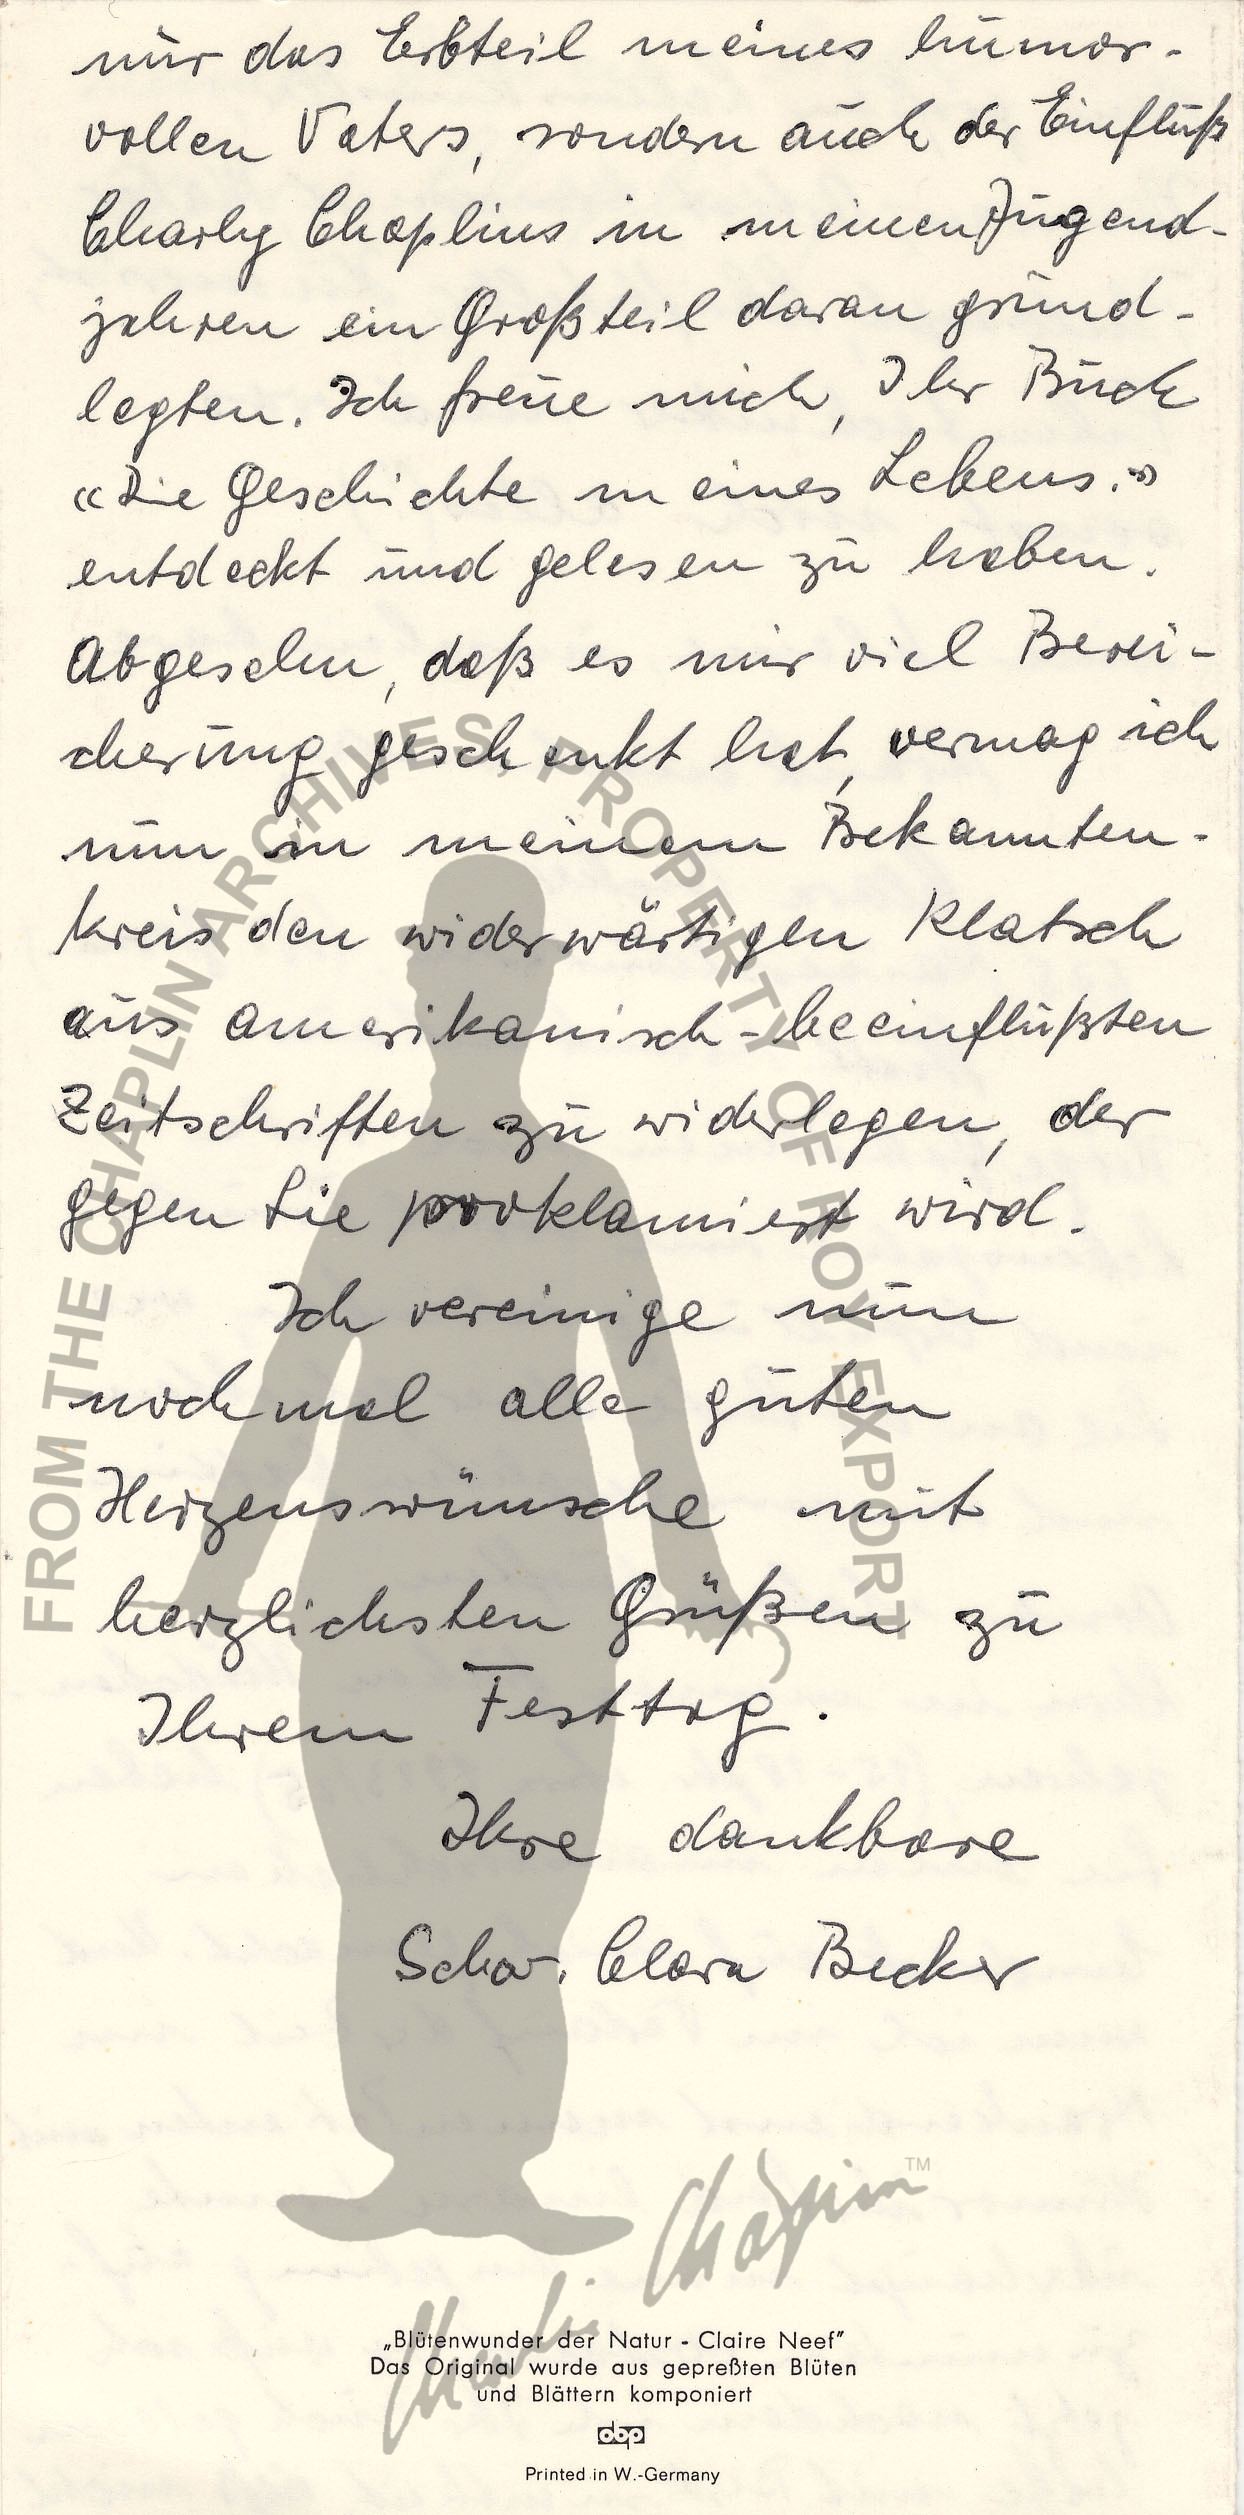 nur das Erbteil meines humor-
vollen Vaters, sondern auch der Einfluß
Charly Chaplins in meinen Jugend-
jahren ein Großteil daran grund-
legten. Ich freue mich, Ihr Buch
«Die Geschichte meines Lebens.»
entdeckt und gelesen zu haben.
Abgesehn, daß es mir viel Berei-
cherung geschenkt hat, vermag ich
nun in meinem Bekannten-
kreis den widerwärtigen Klatsch
aus amerikanisch-beeinflußten
Zeitschriften zu widerlegen, der
gegen Sie proklamiert wird.
Ich vereinige nun
nochmal alle guten
Herzenswünsche mit
herzlichsten Grüßen zu
Ihrem Festtag.
Ihre dankbare
Schw. Clara Becker
FROM THE CHAPLIN ARCHIVES, PROPERTY OF ROY EXPORT
Charlie Chaplin™
„Blütenwunder der Natur - Claire Neef”
Das Original wurde aus gepreßten Blüten
und Blättern komponiert
obp
Printed in W.-Germany